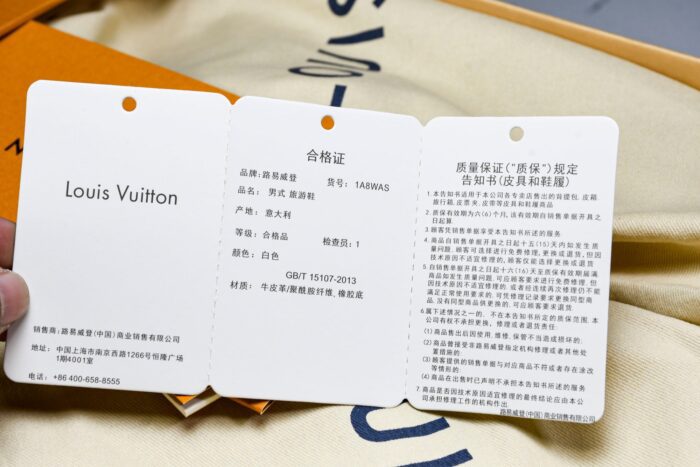 Louis Vuitton
销售商：路易威登(中国)商业销售有限公司
地址： 中国上海市南京西路1266号恒隆广场
1期4001室
电话： +86 400-658-8555
合格证
品牌：路易威登 货号： 1A8WAS
品名： 男式 旅游鞋
产地： 意大利
等级： 合格品 检查员：1
颜色： 白色
GB/T 15107-2013
材质： 牛皮革/聚酰胺纤维、橡胶底
质量保证("质保")规定
告知书(皮具和鞋履)
1. 本告知书适用于本公司各专卖店售出的首提包、皮箱、
旅行箱、皮票夹、皮带等皮具和鞋履商品
2. 质保有效期为六(6)个月,该有效期自销售单据开具之
日起算.
3. 顾客凭销售单据享受本告知书所述的服务.
4. 商品自销售单据开具之日起十五(15)天内如发生质
量问题, 顾客可选择进行免费修理,更换或退货,但因
技术原因不适宜修理的, 顾客仅能选择更换或退货
5. 自销售单据开具之日起十六(16)天至质保有效期届满
商品如发生质量问题, 可应顾客要求进行免费修理, 但
因技术原因不适宜修理的, 或者经连续两次修理仍不能
满足正常使用要求的, 可凭修理记录要求更换同型商
品, 没有同型商品供更换的, 可应顾客要求退货.
6. 属下述情况之一的, 不在本告知书所述的质保范围, 本
公司有权不承担更换, 修理或者退货责任:
(1) 商品售出后因使用, 维修, 保管不当造成损坏的;
(2) 商品曾接受非路易威登指定机构修理或者其他处
置措施的;
(3) 顾客提供的销售单据与对应商品不符或者存在涂改
等情形的;
(4) 商品在出售时已声明不承担本告知书所述的服务
7. 商品是否因技术原因适宜修理的最终结论应由本公
司承担修理工作的机构作出.
路易威登(中国)商业销售有限公司